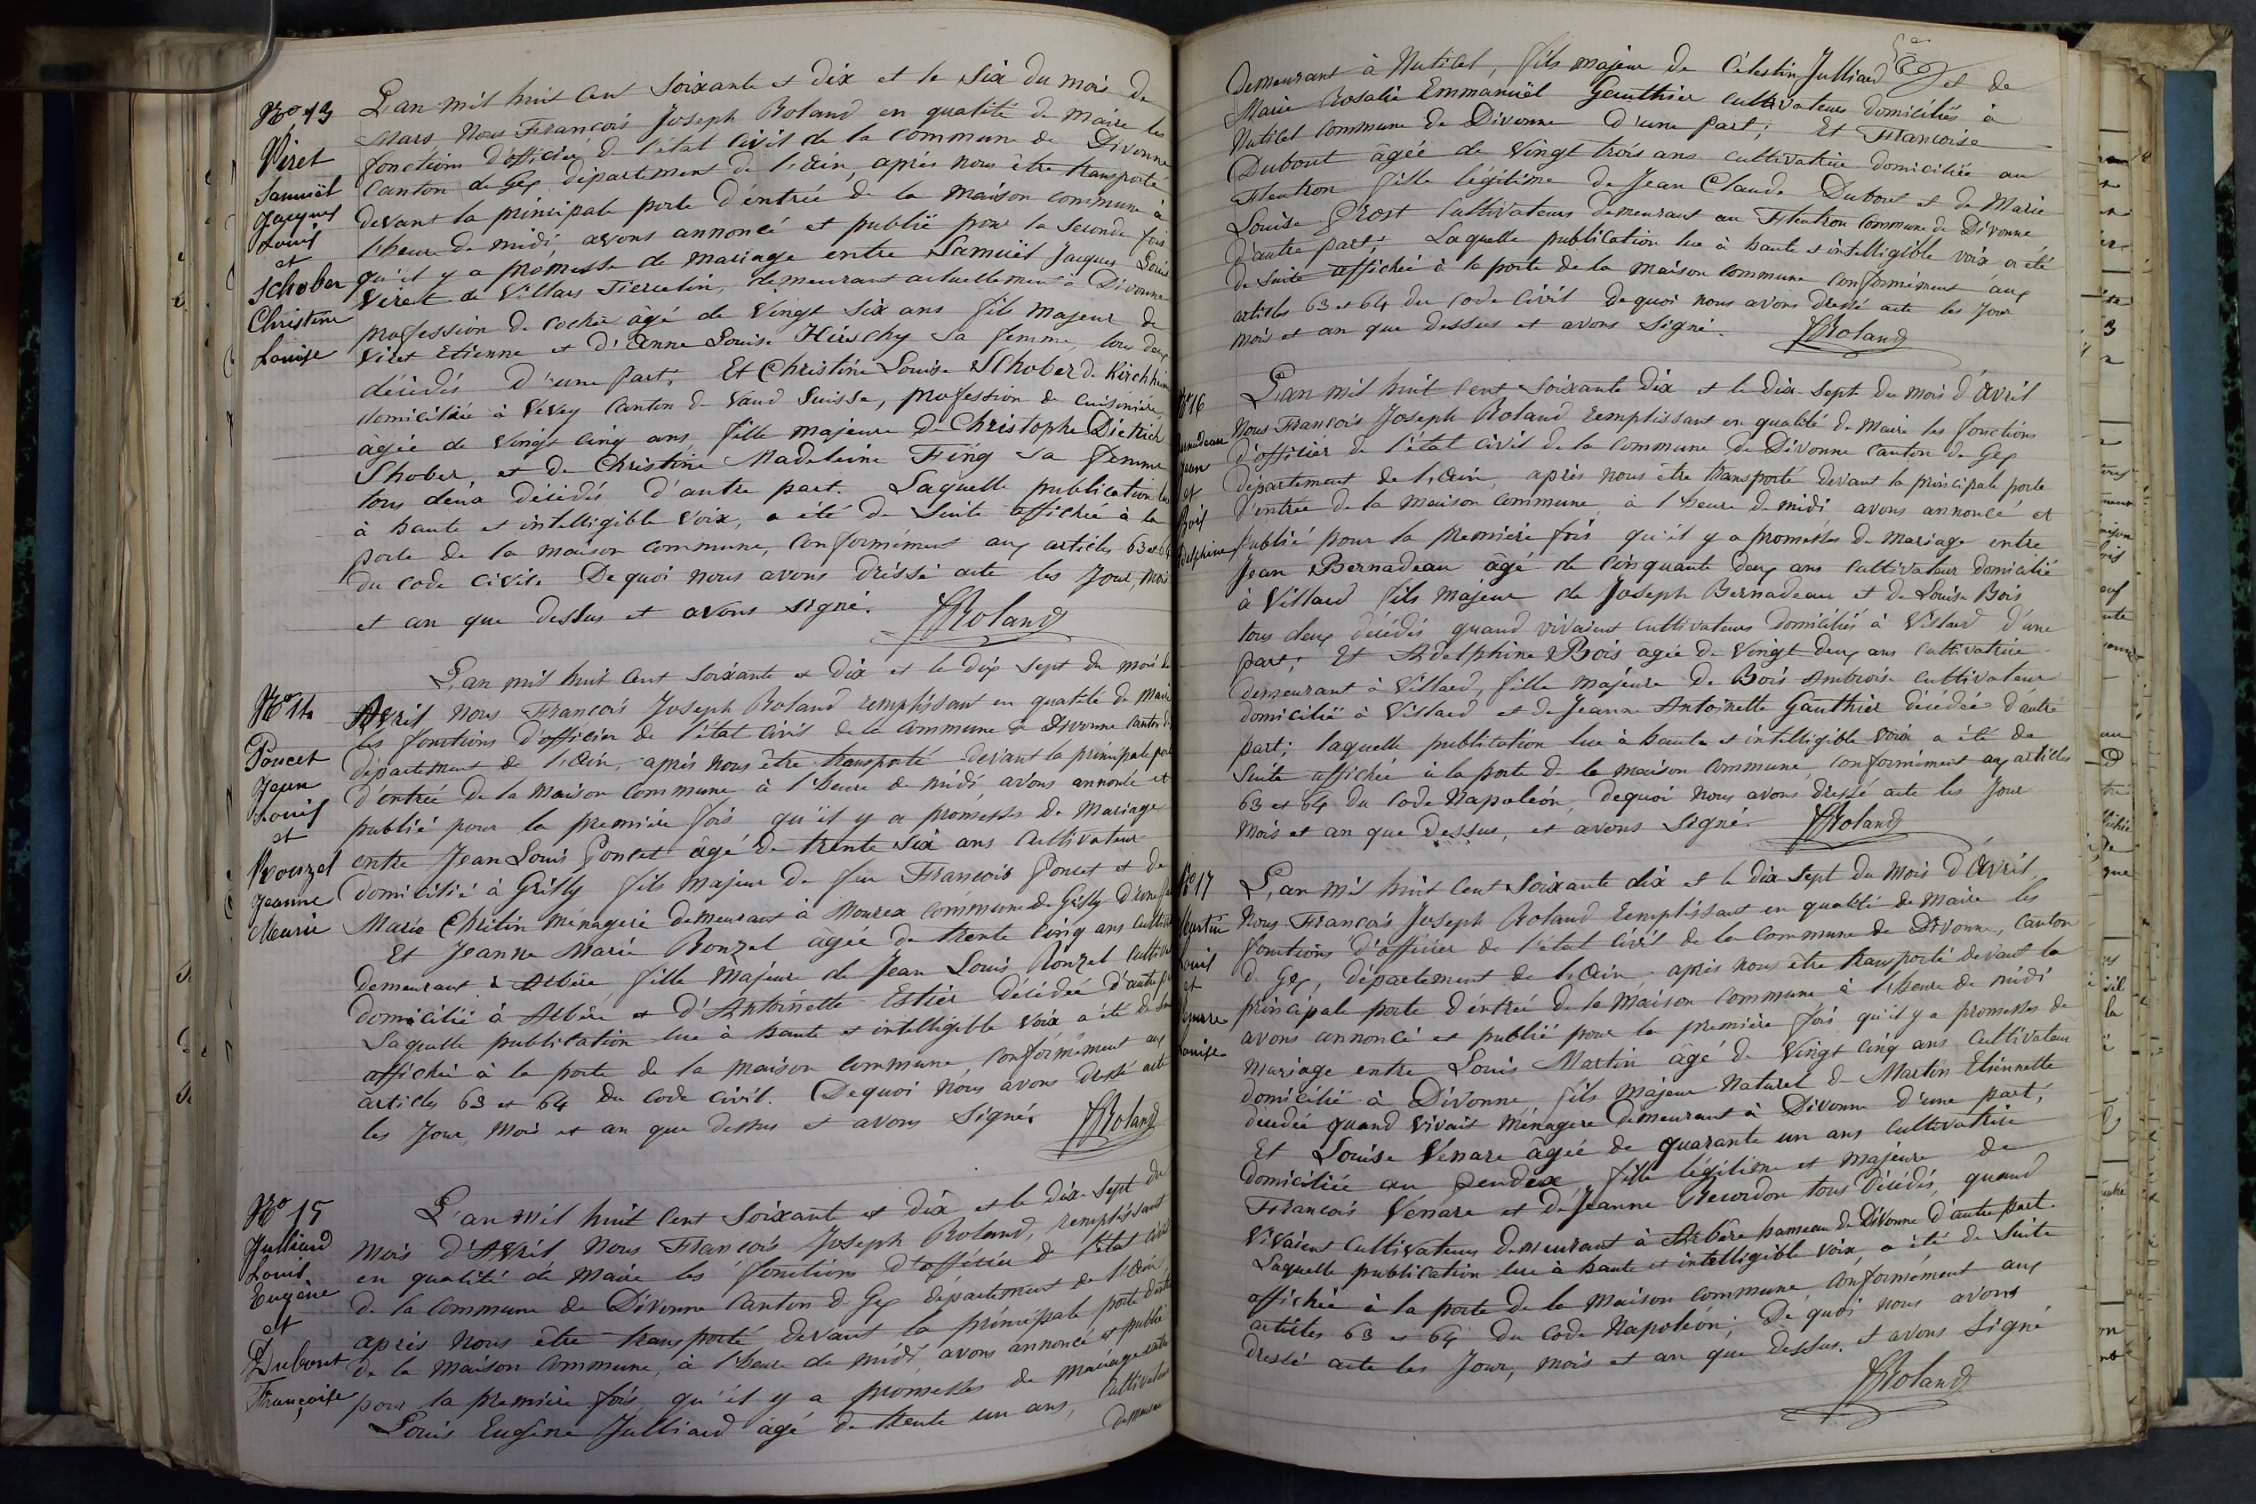 No 13
Viret
Samuël
Jacques
Louis
et
Schober
Christine
Louise
L'an mil huit cent soixante et dix et le six du mois de
Mars Nous François Joseph Roland en qualité de maire les
fonctions d'officier de l'état civil de la commune de Divonne
canton de Gex département de l'Ain, après nous être transporté
devant la principale porte d'entrée de la maison commune à
l'heure de midi avons annoncé et publié pour la seconde fois
qu'il y a promesse de mariage entre Samuël Jacques Louis
Viret de Villars Tiercelin, demeurant actuellement à Divonne
profession de cocher âgé de vingt six ans fils majeur de
Viret Etienne et d'Anne Louise Hirschy sa femme, tous deux
décédés d'une part, Et Christine Louise Schober de Kirchheim
domiciliée à Vevey canton de Vaud Suisse, profession de cuisinière,
âgée de vingt cinq ans, fille majeure de Christophe Dietrich
Shober, et de Christine Madeleine Fing sa femme
tous deux décédés d'autre part. Laquelle publication lue
à haute et intelligible voix, a été de suite affichée à la
porte de la maison commune, conformément aux articles 63 et 64
du code civile De quoi nous avons dressé acte les Jour, Mois
et an que dessus et avons signé. JRoland
No 14
Poncet
Jean
Louis
et
Rouzel
Jeanne
Marie
L'an mil huit cent soixante et dix et le dix sept du mois de
Avril Nous François Joseph Roland remplissant en qualité de Maire
les fonctions d'officier de l'état civil de la commune de Divonne canton de
département de l'Ain, après nous être transporté devant la principale porte
d'entrée de la Maison commune à l'heure de midi avons annoncé et
publié pour la première fois qu'il y a promesses de Mariage
entre Jean Louis Poncet âgé de trente six ans cultivateur
domicilié à Grilly fils majeur de feu François Poncet et de
Marie Chrétin ménagère demeurant à Mourex commune de Grilly d'une part
Et Jeanne Marie Ronzel âgée de trente cinq ans
demeurant à Arbère fille majeure de Jean Louis Ronzel
domicilié à Arbère et d'Antoinette Estier décédée d'autre
Laquelle publication lue à haute et intelligible voix a été de
affichée à la porte de la maison commune, conformément aux
articles 63 et 64 du code civil. De quoi nous avons dressé acte
les Jour, Mois et an que dessus et avons signé. JRoland
No 15
Julliard
Louis
Eugène
et
Dubout
Françoise
L'an mil huit cent soixante et dix et le dix-sept du
mois d'Avril Nous François Joseph Roland, remplissant
en qualité de Maire les fonctions d'officier de l'état civil
de la commune de Divonne canton de Gex département de l'Ain
après nous être transporté devant la principale porte d'entrée
de la maison commune, à l'heure de midi, avons annoncé et publié
pour la première fois, qu'il y a promesses de mariage entre
Louis Eugène Julliard âgé de trente un ans, cultivateur
demeurant
demeurant à Nutilet, fils majeur de Célestin Julliard et de
Marie Rosalie Emmanuël Gauthier cultivateurs domiciliés à
Nutilet commune de Divonne d'une part; Et Françoise
Dubout âgée de vingt trois ans cultivatrice domiciliée au
Flentron fille légitime de Jean Claude Dubout et de Marie
Louise Grost cultivateurs demeurant au Flentron commune de Divonne
d'autre part; Laquelle publication lue à haute et intelligible voix a été
de suite affichée à la porte de la maison commune conformément aux
articles 63 et 64 du code civil de quoi nous avons dressé acte les Jour
Mois et an que dessus et avons signé. JRoland
16
Jean
et
Bois
Delphine
L'an mil huit cent soixante dix et le dix-sept du mois d'Avril
Nous François Joseph Roland remplissant en qualité de Maire les fonctions
d'officier de l'état civil de la commune de Divonne canton de Gex
département de l'Ain, après nous être transporté devant la principale porte
d'entrée de la maison commune, à l'heure de midi avons annoncé et
publié pour la première fois qu'il y a promesses de mariage entre
Jean Bernadeau âgé de cinquante deux ans cultivateur domicilié
à Villard fils majeur de Joseph Bernadeau et de Louise Bois
tous deux décédés quand vivaient cultivateurs domiciliés à Villard d'une
part; Et Adelphine Bois agée de vingt deux ans cultivatrice
demeurant à Villard, fille majeure de Bois Ambroise cultivateur
domicilié à Villard et de Jeanne Antoinette Gauthier décédée d'autre
part; laquelle publication lue à haute et intelligible voix a été de
suite affichée à la porte de la maison commune, conformément aux articles
63 et 64 du Code Napoléon, de quoi nous avons dressé acte les Jour
Mois et an que dessus, et avons signé. JRoland
No 17
Martin
Louis
et
Venare
Louise
L'an mil huit cent soixante dix et le dix-sept du mois d'Avril
Nous François Joseph Roland remplissant en qualité de Maire les
fonctions d'officier de l'état civil de la commune de Divonne, canton
de Gex, département de l'Ain, après nous être transporté devant la
principale porte d'entrée de la Maison commune à l'heure de midi
avons annoncé et publié pour la première fois qu'il y a promesses de
mariage entre Louis Martin âgé de vingt cinq ans cultivateur
domicilié à Divonne fils majeur naturel de Martin Etiennette
décédée quand vivait ménagère demeurant à Divonne d'une part,
Et Louise Vénare âgée de quarante un ans cultivatrice
domiciliée au fille légitime et majeure de
François Vénare et de Jeanne Recordon tous décédés, quand
vivaient cultivateurs demeurant à Arbère hameau de Divonne d'autre part.
Laquelle publication lue à haute et intelligible voix, a été de suite
affichée à la porte de la maison commune conformément aux
articles 63 et 64 du Code Napoléon; De quoi nous avons
dressé acte les Jour, mois et an que dessus. et avons signé
JRoland